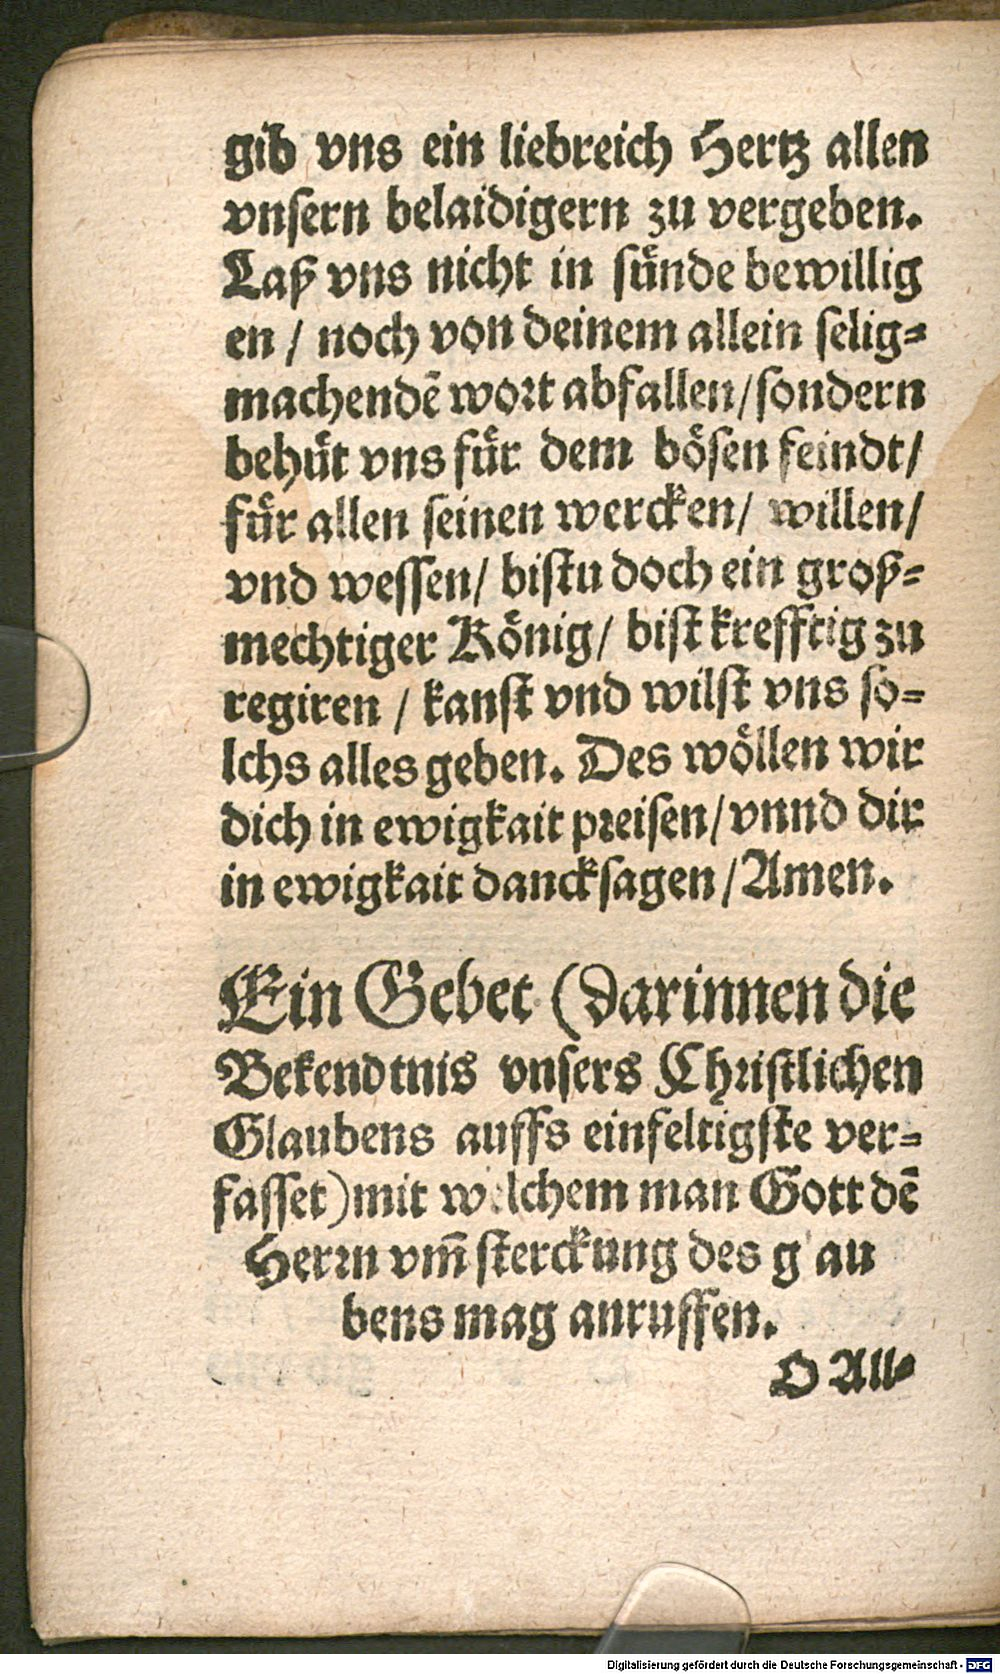 gib vns ein liebreich Hertz allen
vnsern belaidigern zu vergeben.
Laß vns nicht in sünde bewillig
en / noch von deinem allein selig=
machendē wort abfallen / sondern
behüt vns für dem bösen feindt /
für allen seinen wercken / willen /
vnd wessen / bistu doch ein groß=
mechtiger König / bist krefftig zu
regiren / kanst vnd wilst vns so=
lchs alles geben. Des wöllen wir
dich in ewigkait preisen / vnnd dir
in ewigkait dancksagen / Amen.
Ein Gebet (darinnen die
Bekendtnis vnsers Christlichen
Glaubens auffs einfeltigste ver=
fasset) mit welchem man Gott dē
Herrn vm̄ sterckung des g au
bens mag anruffen.
O All=
Digitalisierung gefördert durch die Deutsche Forschungsgemeinschaft - DFG